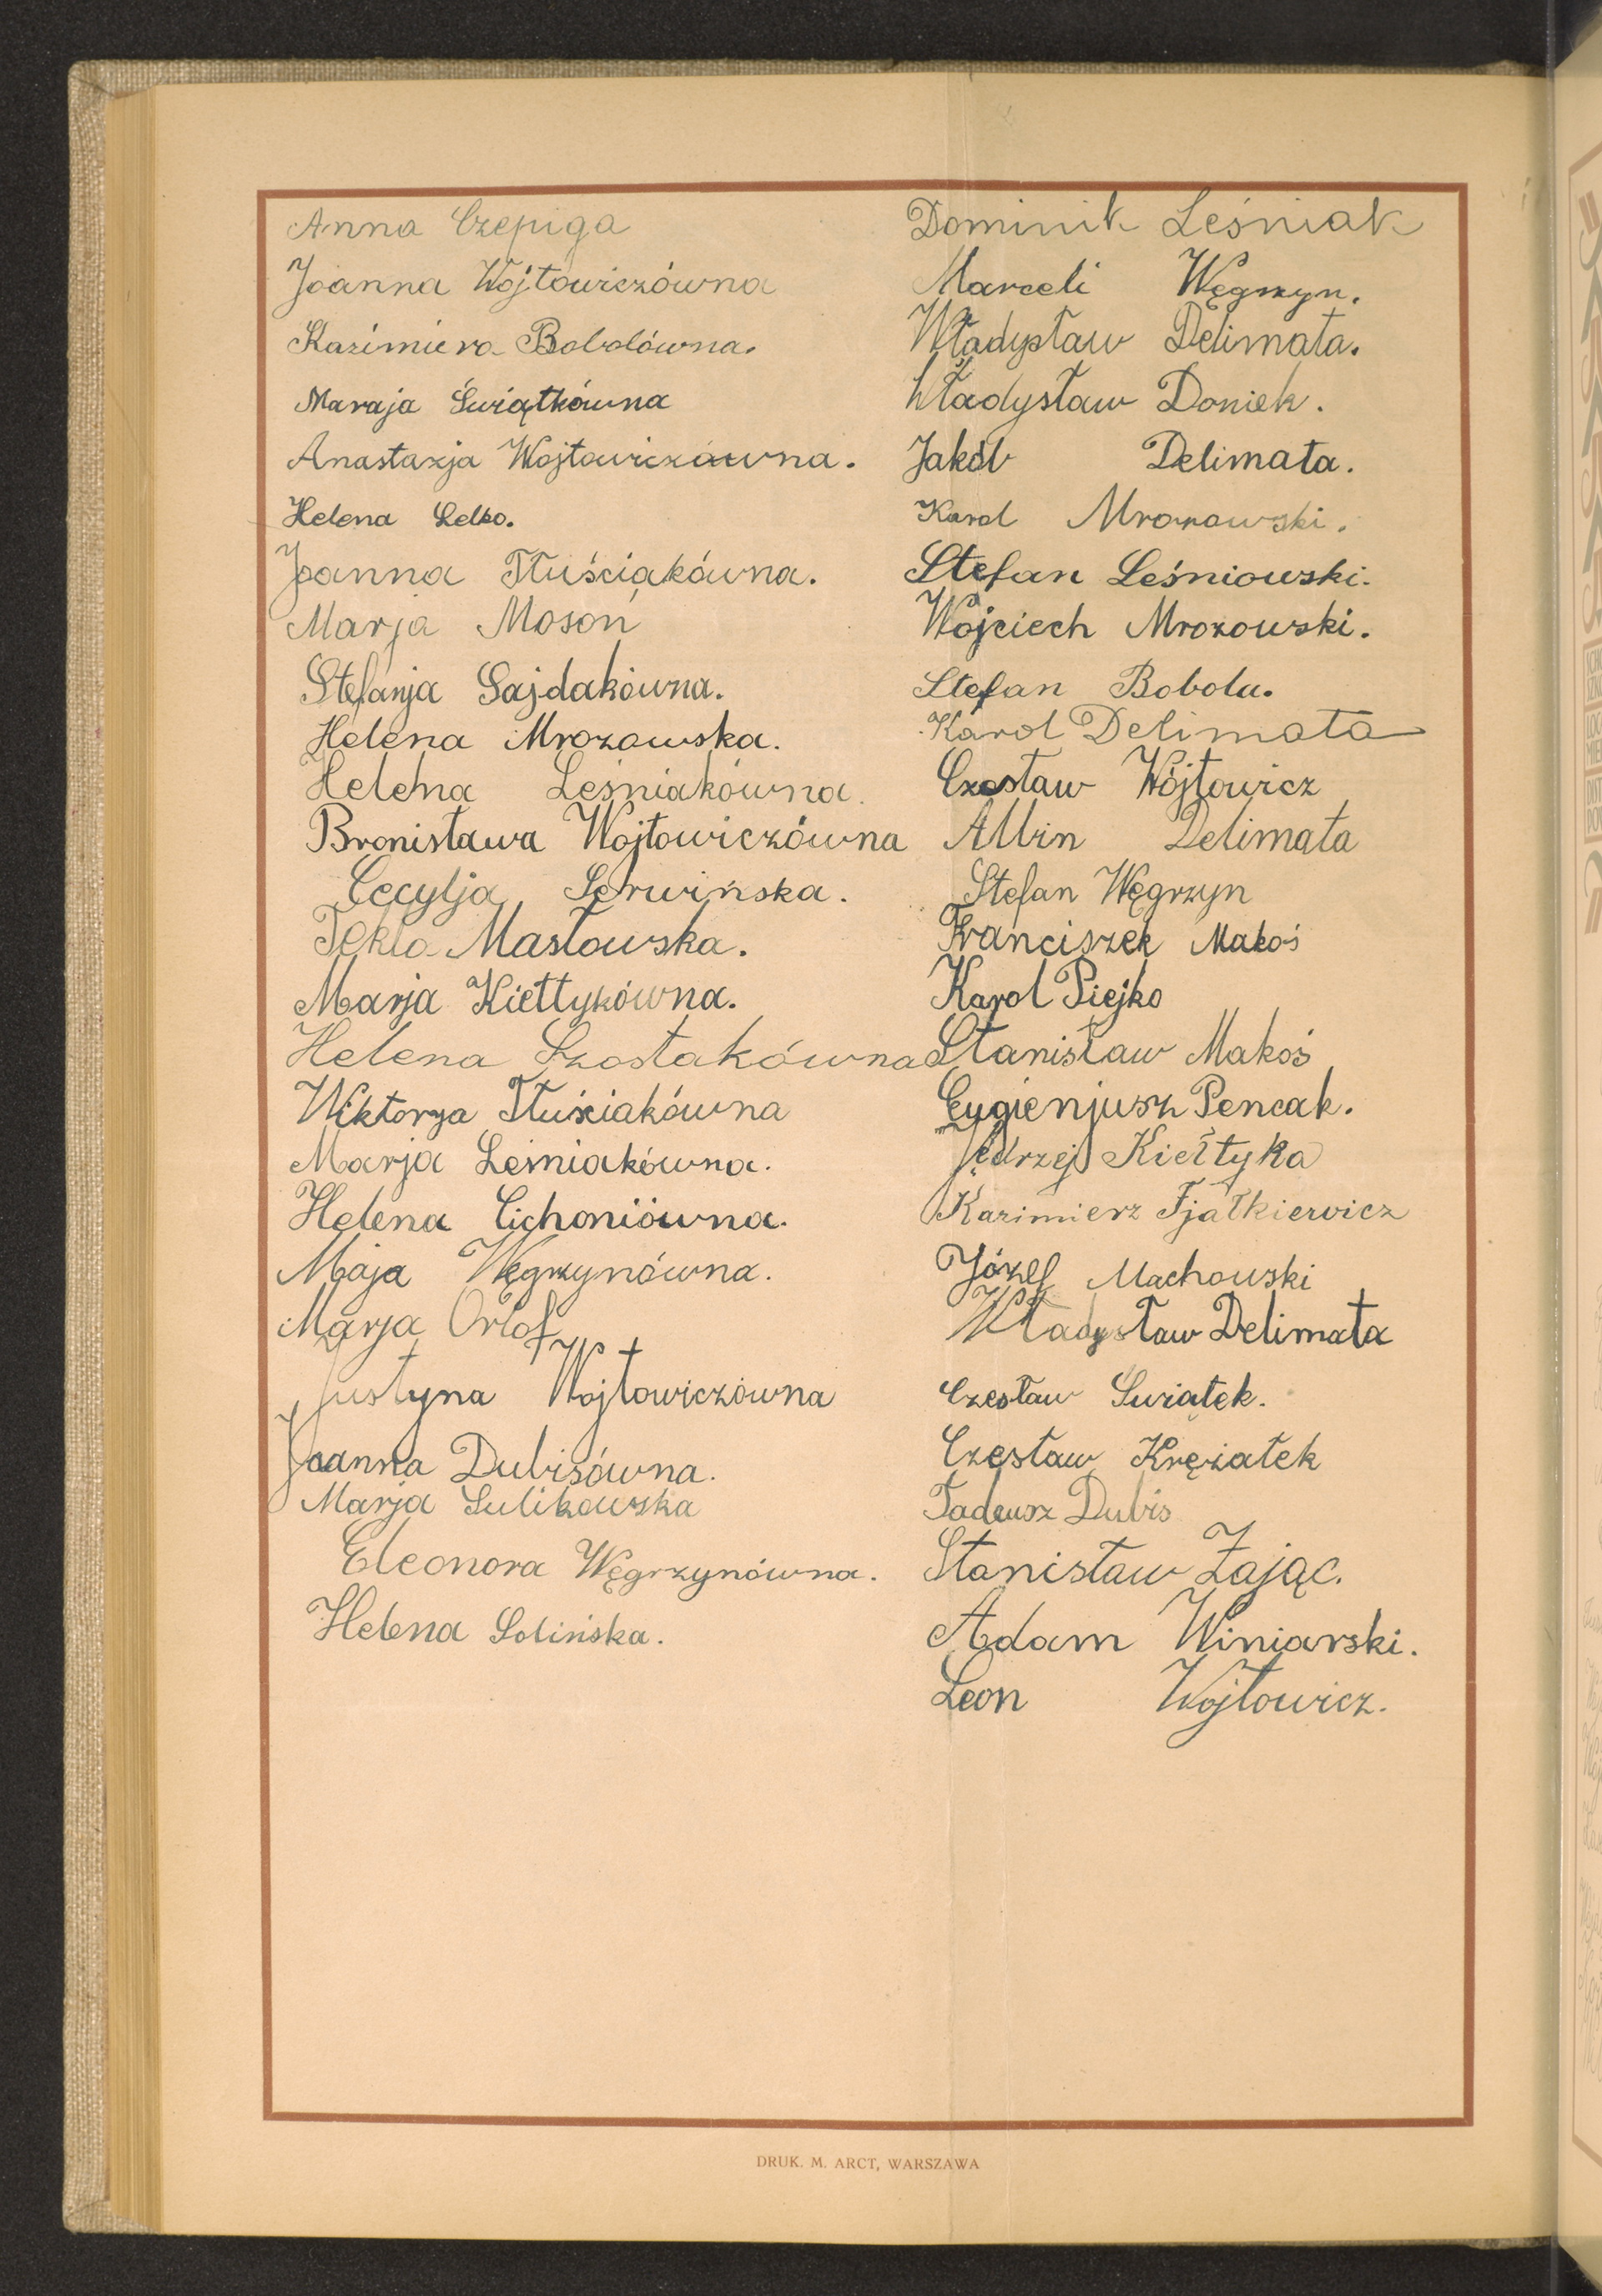 Anna Czepiga
Joanna Wójtowiczówna
Kazimiera Bobolówna.
Maraja Świątkówna
Anastazja Wojtowiczówna.
Helena Lelko.
Joanna Tłuściakówna.
Marja Mosoń
Stefanja Sajdakówna.
Helena Mrozowska.
Helena Leśniakówna.
Bronisława Wojtowiczówna
Cecylja Serwińska.
Tekla Masłowska.
Marja Kiełtykówna.
Helena Szostakówna
Wiktorya Tłuściakówna
Marja Leśniakówna.
Helena Cichoniówna.
Maja Węgrzynówna.
Marja Orlof
Justyna Wojtowiczówna
Joanna Dubisówna.
Marja Sulikowska
Eleonora Węgrzynówna.
Helena Solińska.
Dominik Leśniak
Marceli Węgrzyn.
Władysław Delimata.
Władysław Doniek.
Jakób Delimata.
Karol Mrozowski.
Stefan Leśniowski.
Wojciech Mrozowski.
Stefan Bobola.
Karol Delimata
Czesław Wójtowicz
Albin Delimata
Stefan Węgrzyn
Franciszek Makoś
Karol Piejko
Stanisław Makoś
Eugienjusz Pencak.
Jędrzej Kiełtyka
Kazimierz Fjałkiewicz
Józef Machowski
Władysław Delimata
Czesław Swiątek.
Czesław Krężałek
Tadeusz Dubis
Stanisław Zając.
Adam Winiarski.
Leon Wojtowicz.
DRUK. M. ARCT, WARSZAWA